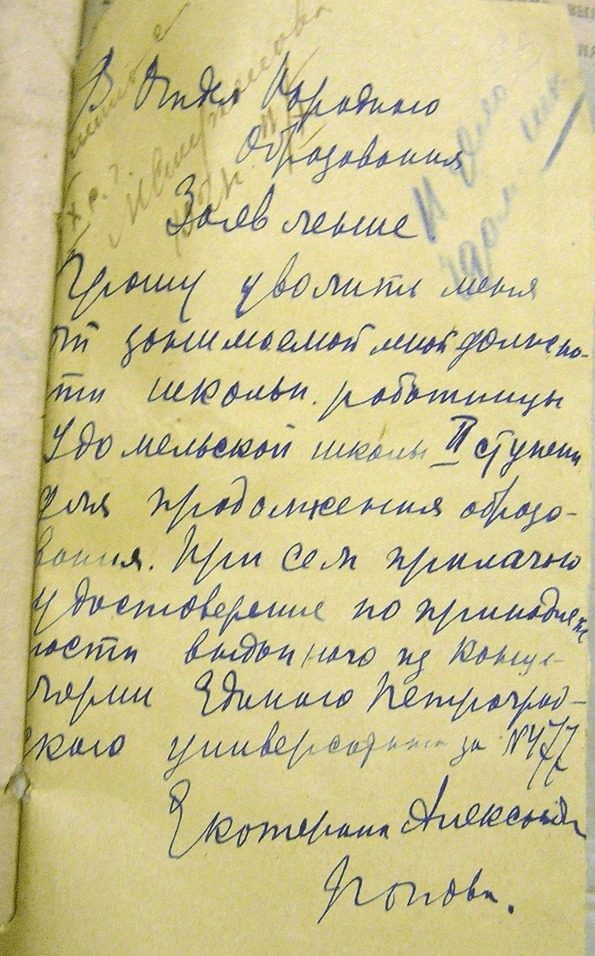 В Отдел Народного
Образования
Заявление
Прошу уволить меня
от занимаемой мной должнос-
ти школьн. работницы
Удомельской школы II ступени
для продолжения образо-
вания. При сем прилагаю
удостоверение по принадлеж
ности выданного из Канце-
лярии Единого Петроград-
ского университета за №477
Екатерина Алексеев
Попова.